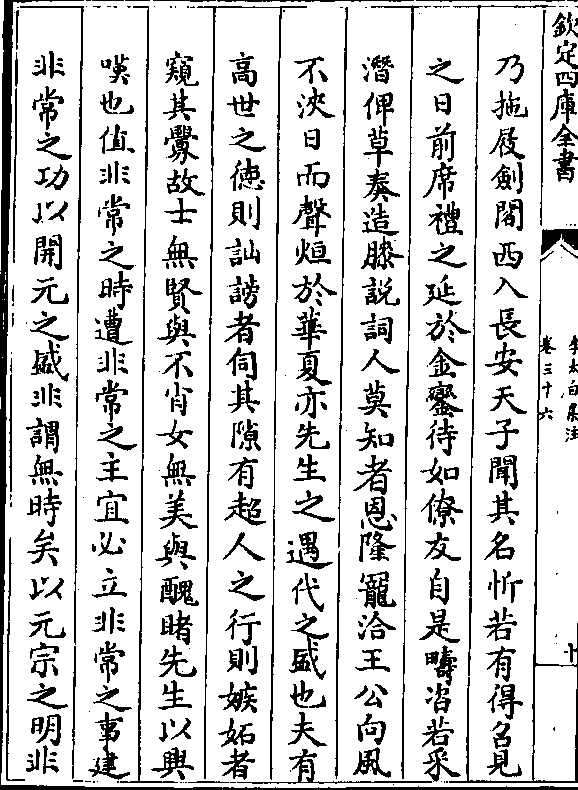 欽定四庫全書
李太白集注
卷三十六
十
乃拖屐劍閣西入長安天子聞其名忻若有得召見
之日前席禮之延於金鑾待如僚友自是疇咨若采
潛俾草奏造膝說詞人莫知者恩隆寵洽王公向風
不浹日而聲烜於華夏亦先生之遇代之盛也夫有
高世之德則訕謗者伺其隙有超人之行則嫉妬者
窺其釁故士無賢與不肖女無美與醜睹先生以興
嘆也值非常之時遭非常之主宜必立非常之事建
非常之功以開元之盛非謂無時矣以元宗之明非